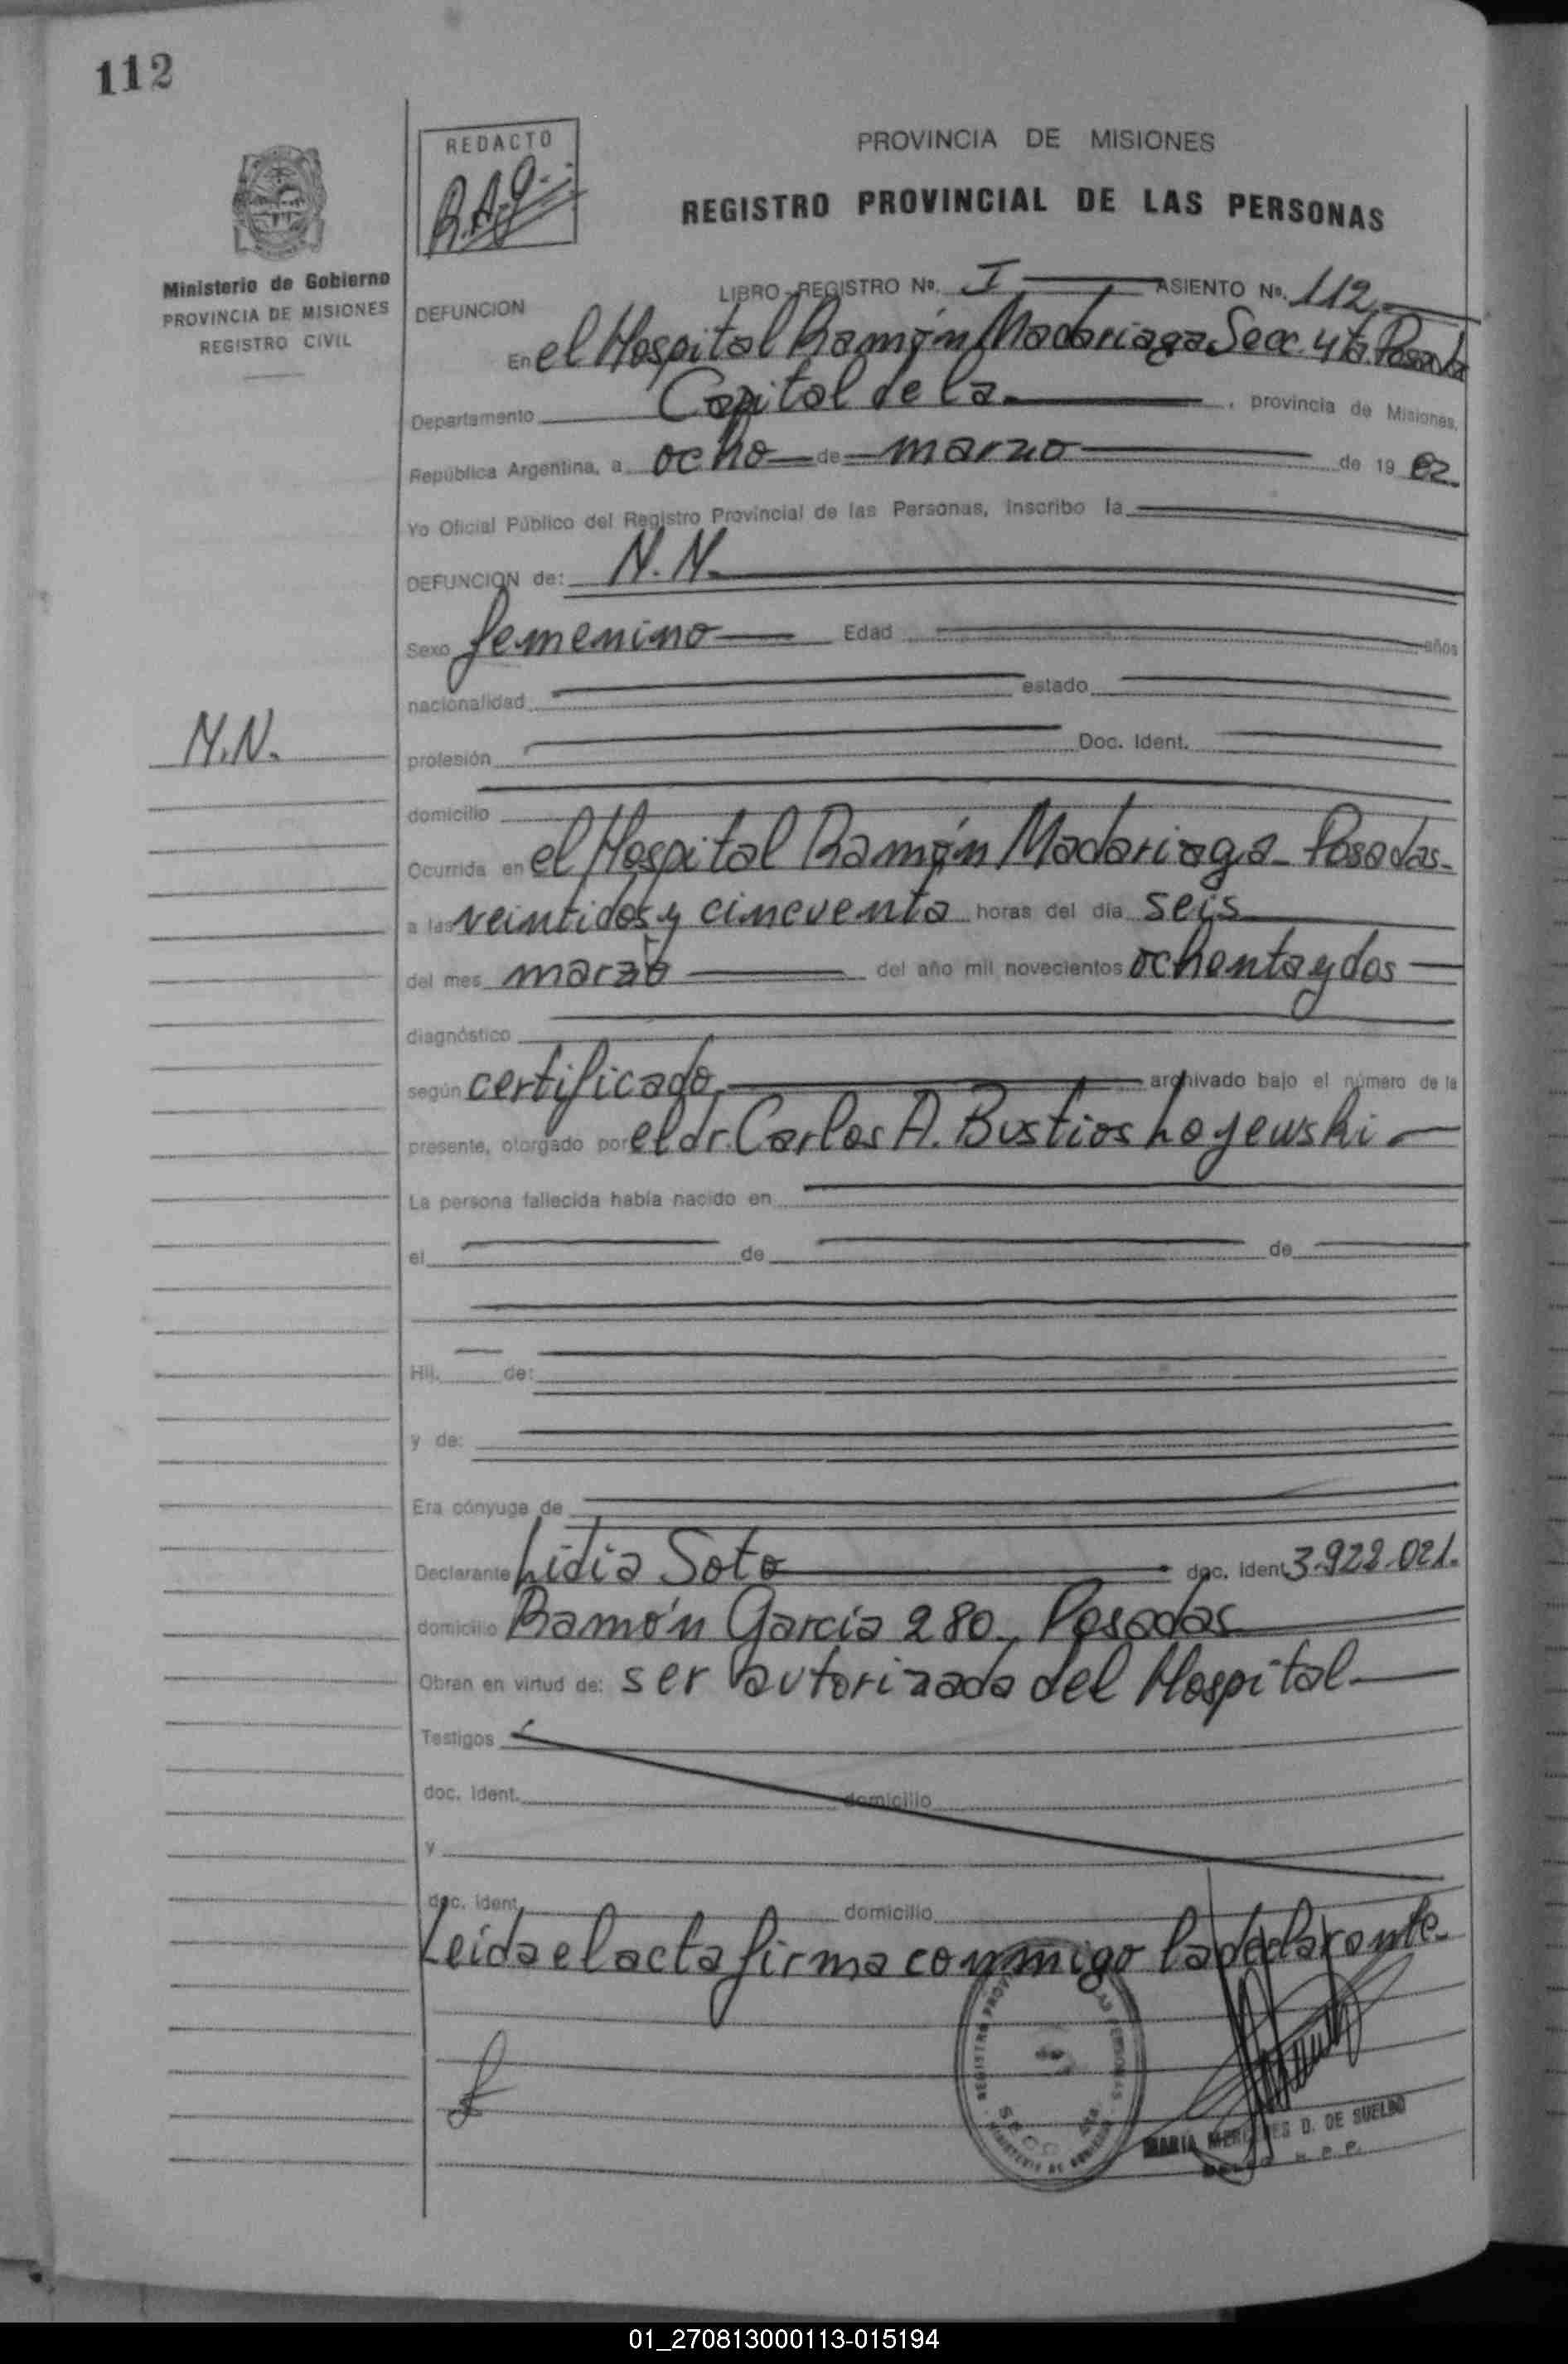 112
REDACTO
PROVINCIA DE MISIONES
REGISTRO PROVINCIAL DE LAS PERSONAS
Ministerio de Gobierno
PROVINCIA DE MISIONES
REGISTRO CIVIL
LIBRO-REGISTRO No. I ASIENTO No. 112
DEFUNCION
En el Hospital Ramón Madariaga Secc. 4ta. Posadas
Departamento Capital de la , provincia de Misiones,
República Argentina, a ocho de marzo de 19 82.
Yo Oficial Público del Registro Provincial de las Personas, inscribo la
DEFUNCION de: N.N.
Sexo femenino Edad años
nacionalidad estado
N.N.
profesión Doc. Ident.
domicilio
Ocurrida en el Hospital Ramón Madariaga - Posadas-
a las veintidos y cincuenta horas del día seis
del mes marzo del año mil novecientos ochenta y dos
diagnóstico
según certificado archivado bajo el número de la
presente, otorgado por el dr. Carlos A. Bustios Loyewski
La persona fallecida había nacido en
el de de
Hij. de:
y de:
Era cónyuge de
Declarante Lidia Soto doc. Ident 3.922.021.
domicilio Ramón García 280, Posadas
Obran en virtud de: ser autorizada del Hospital
Testigos
doc. Ident. domicilio
y
doc. Ident. domicilio
Leida el acta firma conmigo la declarante-
MARIA MERCEDES D. DE SUELDO
01_270813000113-015194